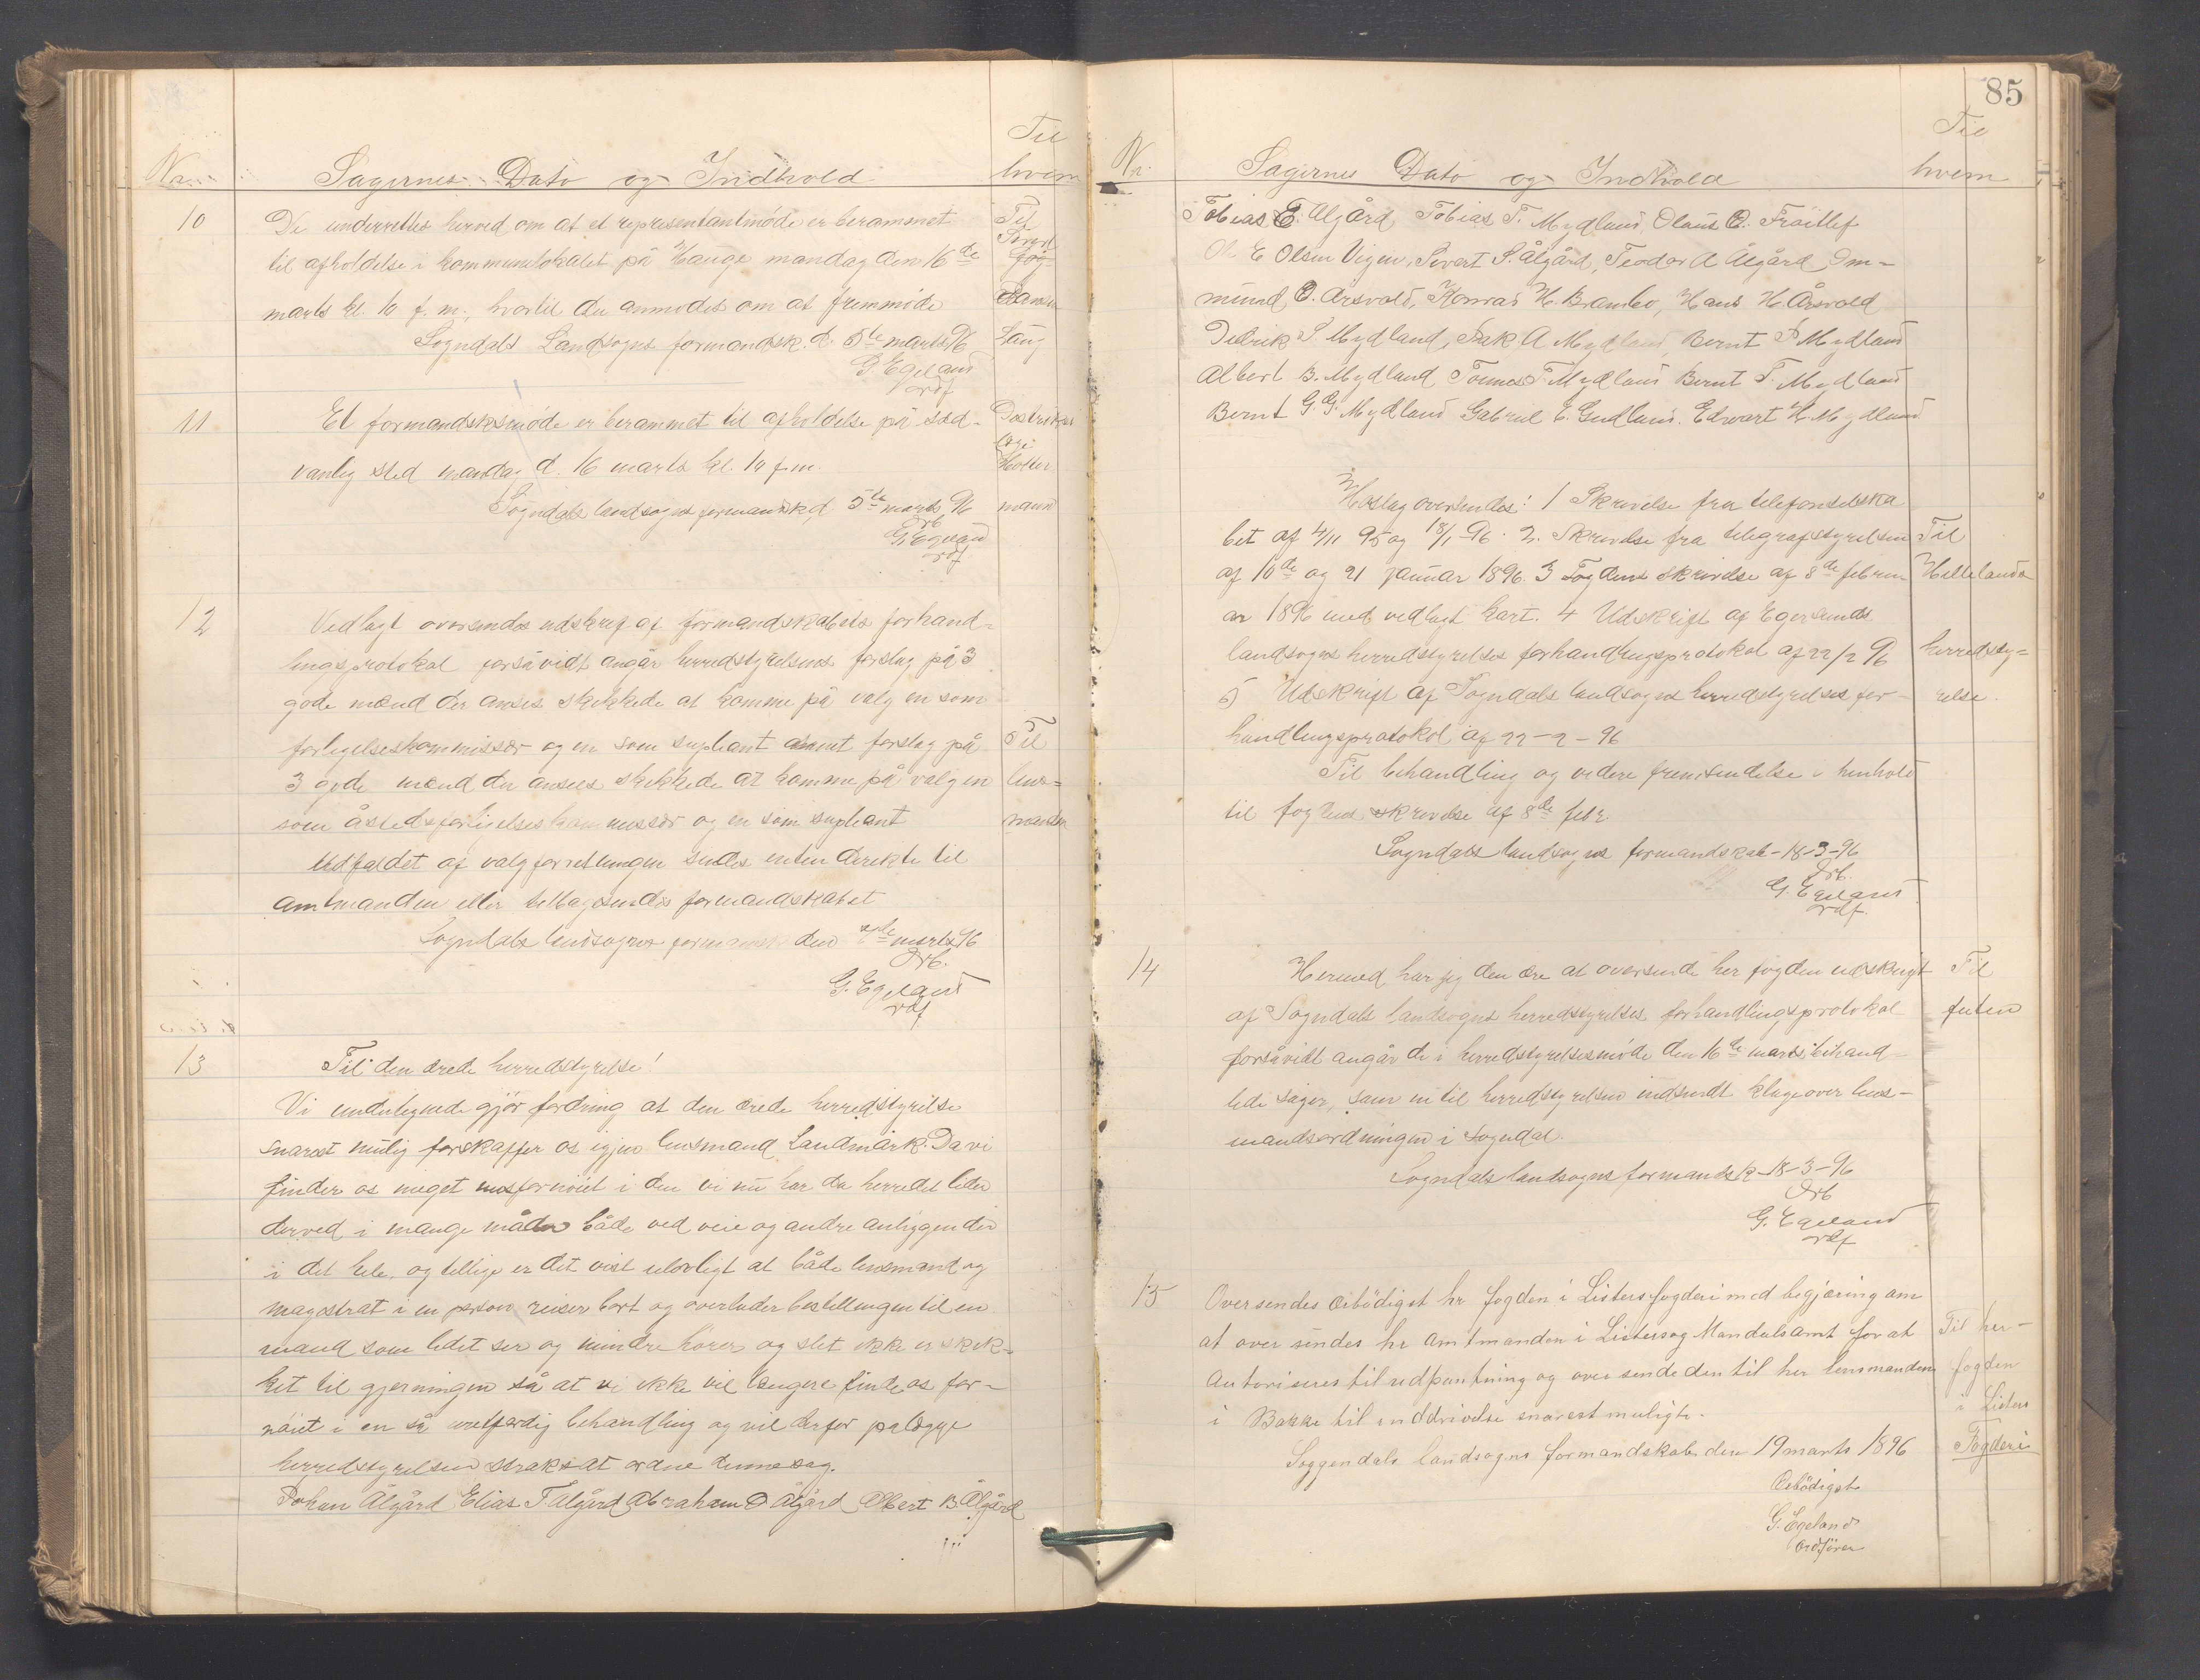 Nr.
Sagernes Dato og Indhold
Til
hvem
10
De underrettes herved om at et representantmöde er berammet
til afholdelse i kommunelokalet på Hauge mandag den 16de
marts kl. 10 f. m., hvortil du anmodes om at fremmöde
Sogndals Landsogns formandsk. d. 5te marts 96
G Egeland
ordf
Til
11
Et formandskmöde er berammet til afholdelse på sæd-
vanlig sted mandag d. 16 marts kl. 10 f.m.
Sogndals landsogns formandsk. d. 5te marts 96
Ærb
G. Egeland
ordf
Distrikts
læge
Holter
mann
12
Vedlagt oversendes udskrift af formandskabets forhand-
lingsprotokol forsåvidt angår herredstyrelsens forslag på 3
gode mænd der ansees skikkede at komme på valg en som
forligelseskommissær og en som supleant samt forslag på
3 gode mænd der ansees skikkede at komme på valg en
som åstedsforligelseskommissær og en som supleant
Udfaldet af valgforretningen sendes enten direkte til
amtmanden eller tilbagesendes formandskabet
Sogndals landsogns formandsk den 7de marts 96
Ærb.
G. Egeland
ordf
Til
lens=
manden
13
Til den ærede herredstyrelse!
Vi undertegnede gjör fordring at den ærede herredstyrelse
snarest mulig forskaffer os igjen lensmand Landmark. Da vi
finder os meget misfornöiet i den vi nu har da herredet lider
derved i mange måder både ved veie og andre anliggender
i det hele, og tillige er det vist ulovligt at både lensmand og
magistrat i en person reiser bort og overlader bestillingen til en
mand som lidet ser og mindre hörer og slet ikke er skik=
ket til gjerningen så at vi ikke vil længere finde os for-
nöiet i en så uretfærdig behandling og vil derfor pålægge
herredstyrelsen straks at ordne denne sag.
Johan Ålgård Elias T Ålgård Abraham O Ålgård Albert B. Ålgård
85
Nr.
Sagernes Dato og Indhold
Til
hvem
Tobias E. Ålgård Tobias T. Mydland, Olaus O. Fröitlef
E Olsen Vigen, Sivert S. Ålgård, Teodor A Ålgård Om-
mund O. Årsvold, Konrad H. Brambo, Hans H. Årsvold
Didrik S Mydland, Isak A Mydland, Bernt P Mydland
Albert B. Mydland Tönnes T Mydland Bernt T. Mydland
Bernt G. G. Mydland Gabriel E. Gudland. Edvart H. Mydland
Hoslag oversendes: 1 Skrivelse fra telefonselska
bet af 4/11 95 og 18/1 96. 2. Skrivelse fra telegrafstyrelsen
af 10de og 21 januar 1896. 3 Fogdens skrivelse af 8de febru
ar 1896 med vedlagt kart. 4 Udskrift af Egersunds
landsogns herredstyrelses forhandlingsprotokol af 22/2 96
5) Udskrift af Sogndals landsogns herredstyrelses for-
handlingsprotokol af 22-2-96
Til behandling og videre fremsendelse i henhold
til fogdens skrivelse af 8de febr.
Sogndals landsogns formandskab - 18-3-96
Ærb.
G. Egeland
ordf.
Til
Hellelands
herredsty=
relse.
14
Hermed har jeg den ære at oversende her fogden udskrift
af Sogndals landsogns herredstyrelses forhandlingsprotokol
forsåvidt angår de i herredstyrelsesmöde den 16de marts behand=
lede sager, samt en til herredstyrelsen indsendt klage over lens-
mandsordningen i Sogndal.
Sogndals landsogns formandsk - 18-3-96
Ærb
G. Egeland
ordf
Til
futen
15
Oversendes ærbödigst hr fogden i Listers fogderi med begjæring om
at over sendes hr amtmanden i Listers og Mandals amt for at
autoriseres til udpantning og over sende den til her lensmanden
i Bakke til inddrivelse snarest muligt.
Soggendals landsogns formandskab den 19 marts 1896
Ærbödigst
G. Egeland
ordförer
Til her-
fogden
i Listers
Fogderi